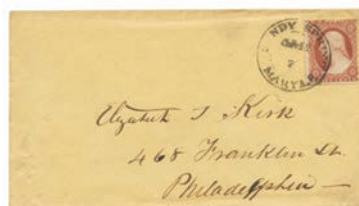 NDY SPRIN
7
MARYLD
Elizabeth T Kirk
468 Franklin St.
Philadelphia